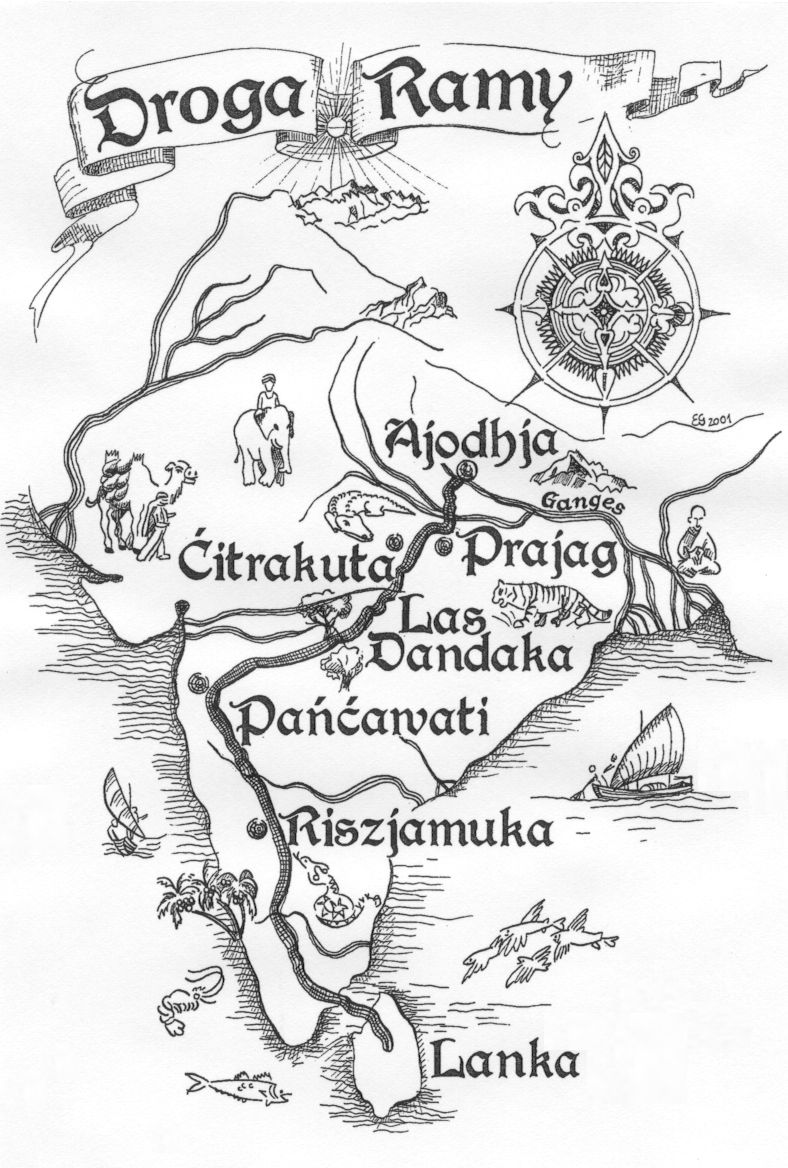 Droga Ramy
EG 2001
Ajodhja
Ganges
Ćitrakuta
Prajag
Las
Dandaka
Pańćawati
Riszjamuka
Lanka